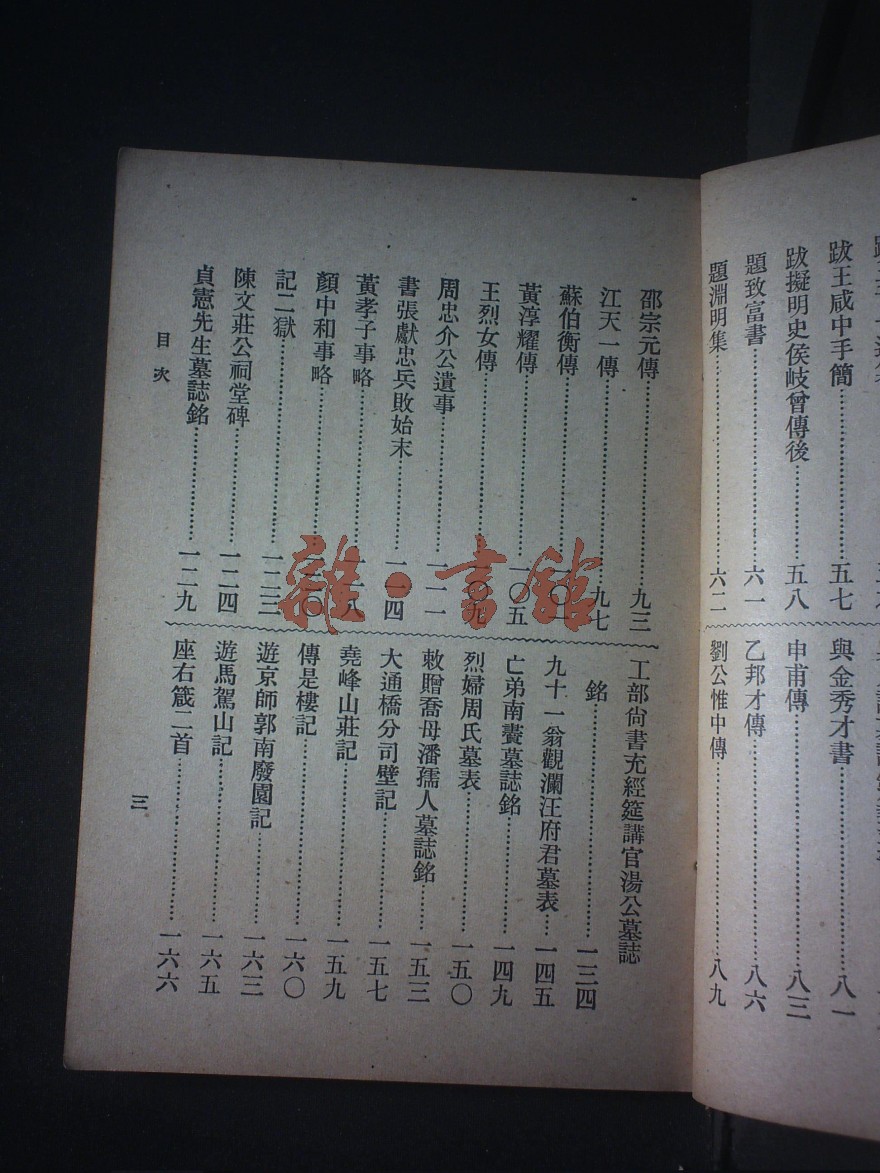 跋王咸中手簡⋯⋯五七
跋擬明史侯岐曾傳後⋯⋯五八
題致富書⋯⋯六一
題淵明集⋯⋯六二
與金秀才書⋯⋯八一
申甫傳⋯⋯八三
乙邦才傳⋯⋯八六
劉公惟中傳⋯⋯八九
邵宗元傳⋯⋯九三
江天一傳⋯⋯九七
蘇伯衡傳⋯⋯
黃淳耀傳⋯⋯一〇五
王烈女傳⋯⋯一〇九
周忠介公遺事⋯⋯一一一
書張獻忠兵敗始末⋯⋯一一四
黃孝子事略⋯⋯一一八
顏中和事略⋯⋯一二〇
記二獄⋯⋯一二三
陳文莊公祠堂碑⋯⋯一二四
貞憲先生墓誌銘⋯⋯一二九
工部尙書充經筵講官湯公墓誌
銘⋯⋯一三四
九十一翁觀瀾汪府君墓表⋯⋯一四五
亡弟南賷墓誌銘⋯⋯一四九
烈婦周氏墓表⋯⋯一五〇
敕贈喬母潘孺人墓誌銘⋯⋯一五三
大通橋分司壁記⋯⋯一五七
堯峰山莊記⋯⋯一五九
傳是樓記⋯⋯一六〇
遊京師郭南廢園記⋯⋯一六三
遊馬駕山記⋯⋯一六五
座右箴二首⋯⋯一六六
目次
三
雜·書館